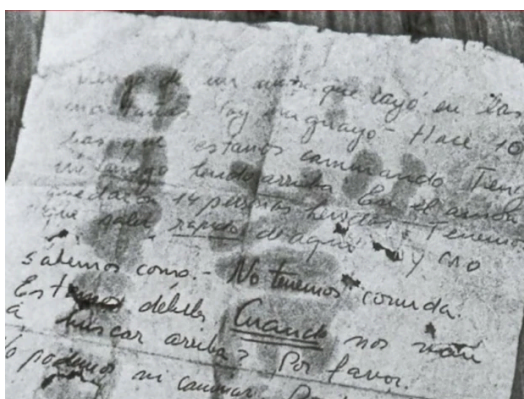 Vengo de un avión que cayó en las
montañas Soy uruguayo - Hace 10
días que estamos caminando Tene
un amigo herido arriba En el avión
quedaron 14 personas heridas. Tenemos
que salir rapido de aqui y no
sabemos como.- No tenemos comida.
Estamos débiles Cuando nos van
a buscar arriba? Por favor.
No podemos ni caminar